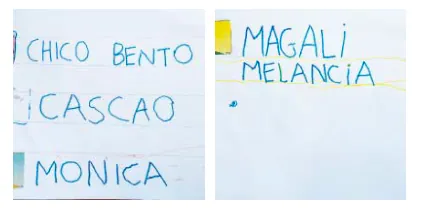 CHICO BENTO
CASCAO
MONICA
MAGALi
MELANCiA